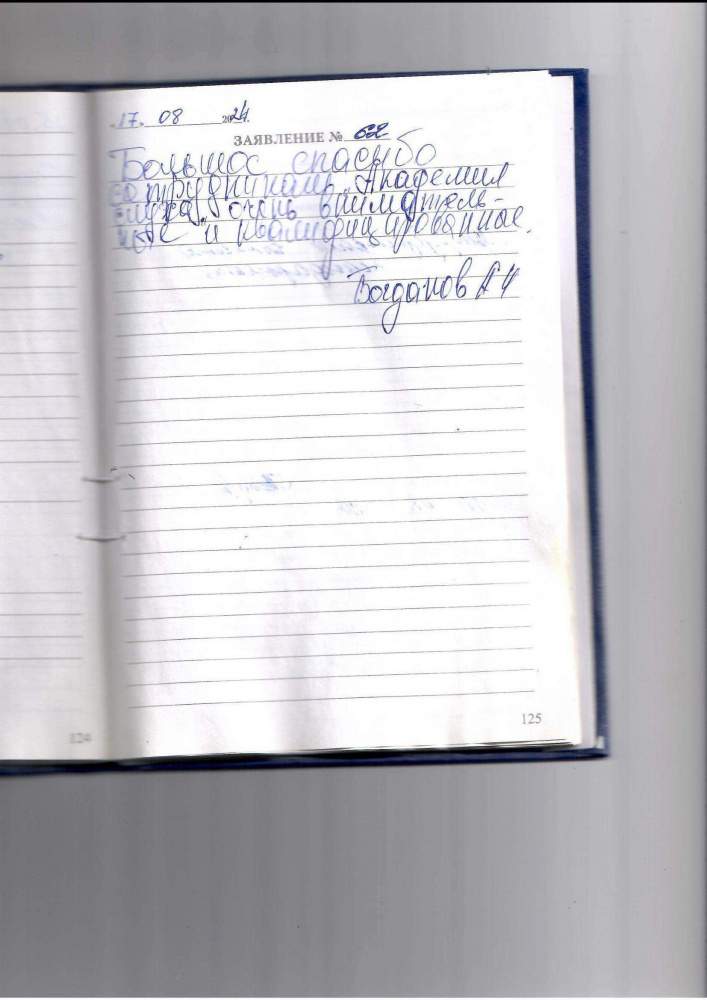 17. 08 2024г.
ЗАЯВЛЕНИЕ № 62
Большое спасыбо
сотрудникам "Академия
слуха" очень вниматель-
ные и квалифицированные.
Богданов А Н
124
125